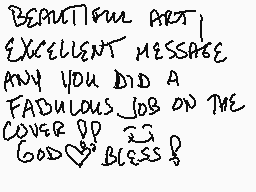 BEAUTIFUL ART,
EXCELLENT MESSAGE
ANY YOU DID A
FABULOUS JOB ON THE
COVER!!
GOD BLESS!